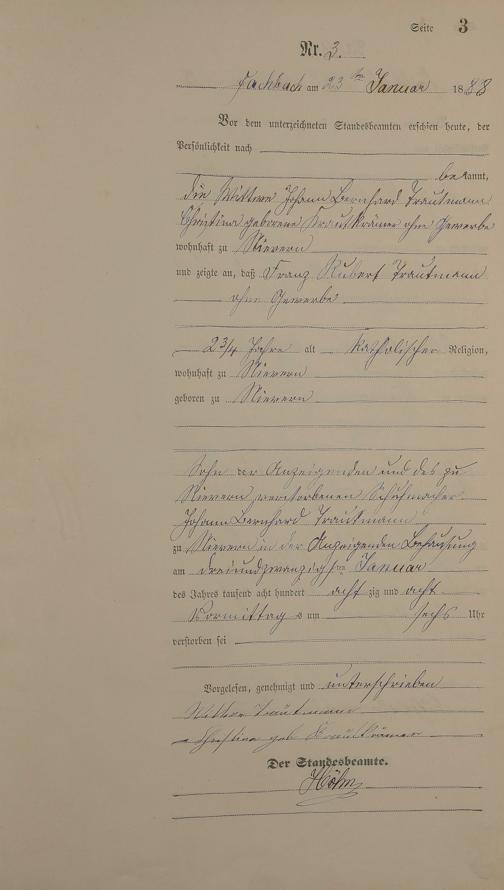 Seite 3
Nr. 3.
Fachbach am 23ten Januar 1888
Vor dem unterzeichneten Standesbeamten erschien heute, der
Persönlichkeit nach
bekannt,
die Wittwe Johann Bernhard Trautmann
Christina geborene Krautkrämer ohne Gewerbe
wohnhaft zu Nievern
und zeigte an, daß Franz Hubert Trautmann
ohne Gewerbe
2 3/4 Jahre alt katholischer Religion,
wohnhaft zu Nievern
geboren zu Nievern
Sohn der Anzeigenden und des zu
Nievern verstorbenen Schuhmacher
Johann Bernhard Trautmann
zu Nievern in der Anzeigenden Behausung
am dreiundzwanzigsten Januar
des Jahres tausend acht hundert achtzig und acht
Vormittags um sechs Uhr
verstorben sei
Vorgelesen, genehmigt und unterschrieben
Wittwe Trautmann
Christina geb Krautkrämer
Der Standesbeamte.
Höhn